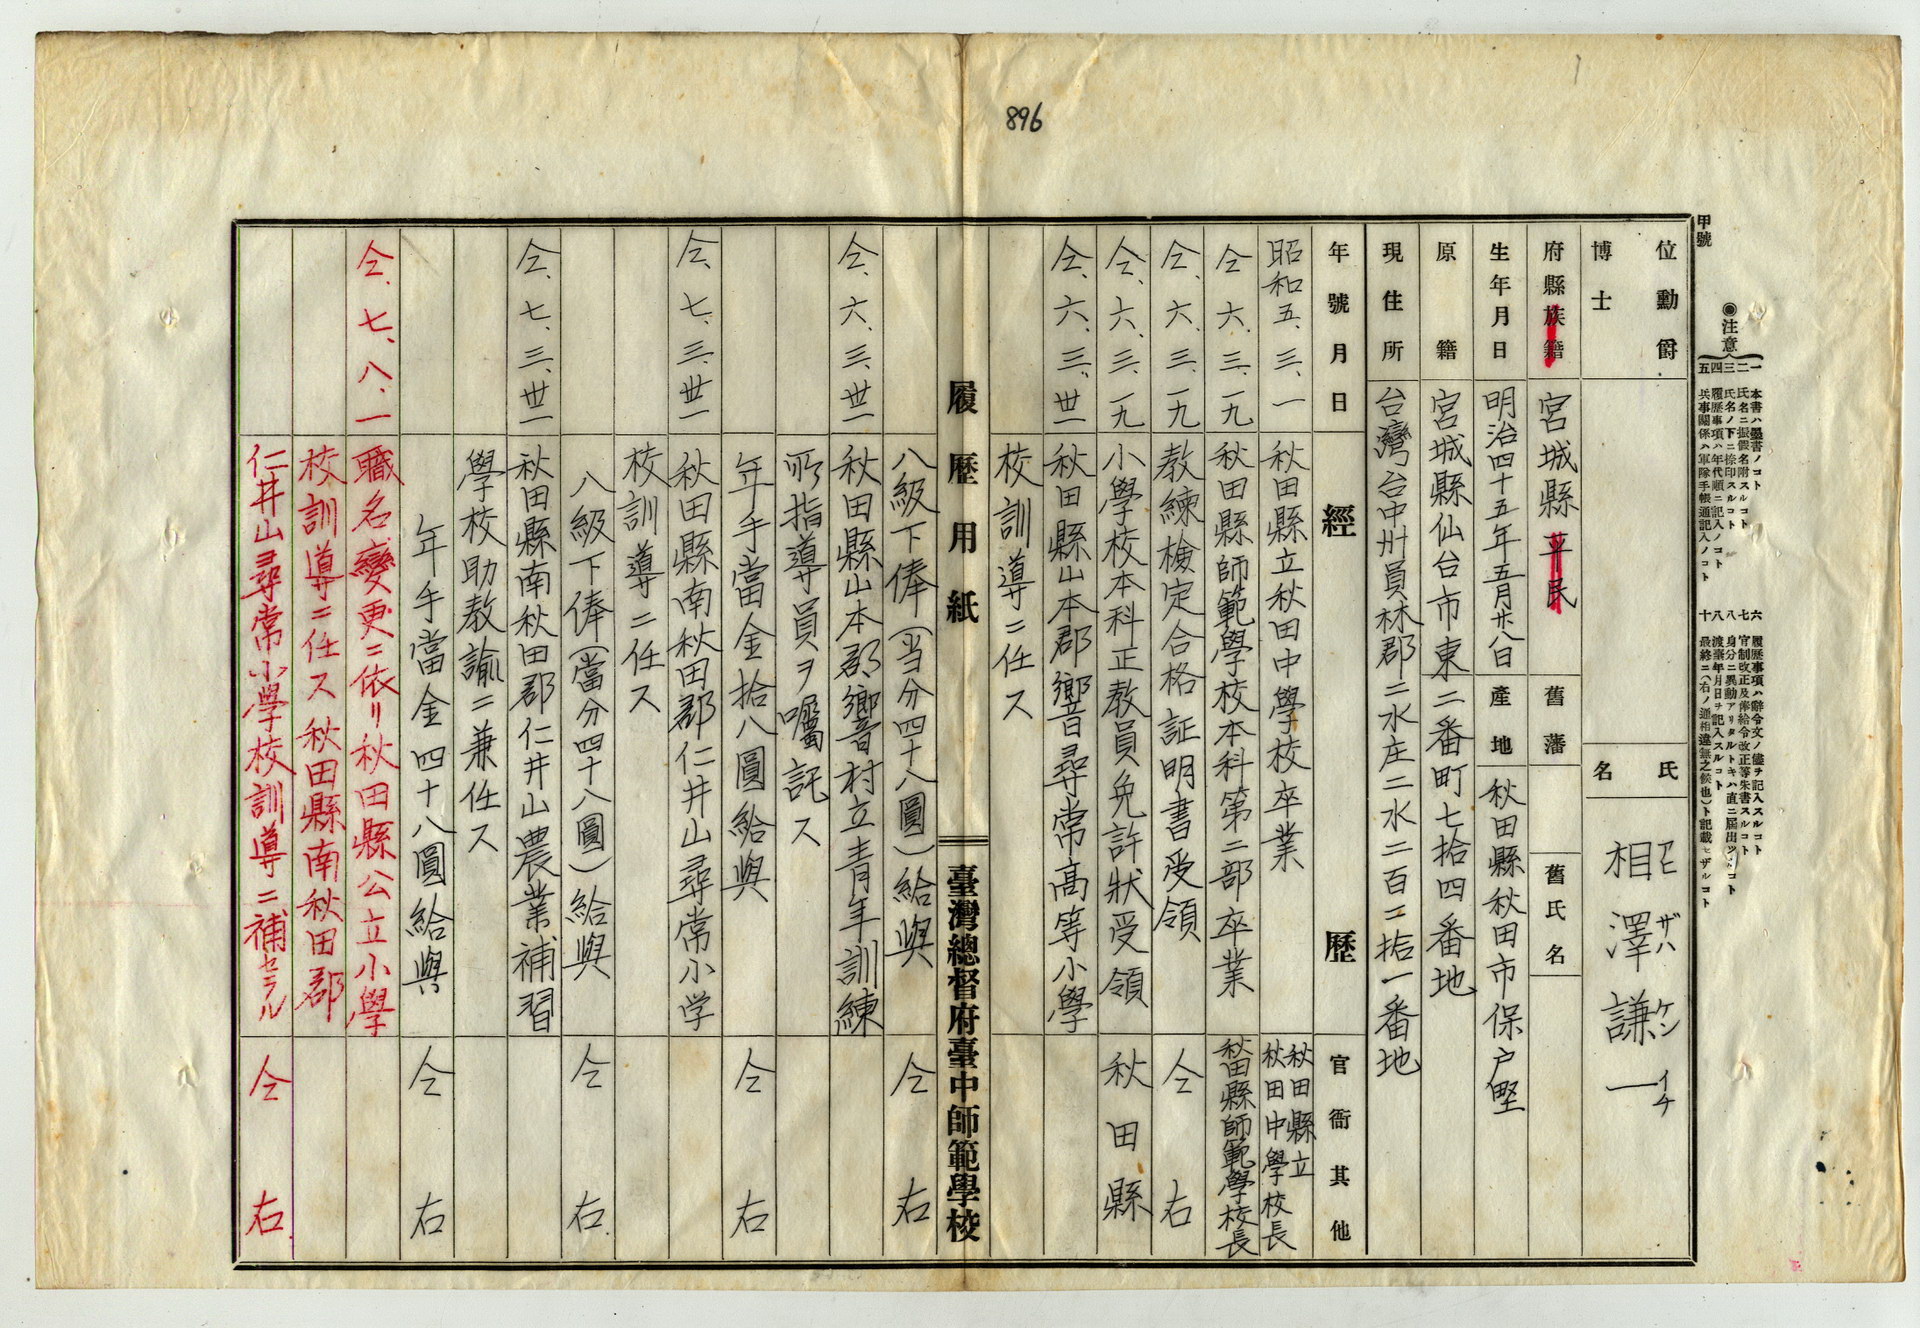 896
甲號
◉注意
一 本書ハ墨書ノコト
二 氏名ニ振假名附スルコト
三 氏名ノ下ニ捺印スルコト
四 履歷事項ハ年代順ニ記入ノコト
五 兵事關係ハ軍隊手帳通記入ノコト
六 履歷事項ハ辭令文ノ儘ヲ記入スルコト
七 官制改正及俸給令改正等朱書スルコト
八 身分ニ異動アリタルトキハ直ニ屆出ヅルコト
九 渡臺年月日ヲ記入スルコト
十 最終ニ(右ノ通相違無之候也)ト記載セザルコト
位勳爵
博士
氏名
アヒザハ ケンイチ
相澤謙一
府縣族籍
宮城縣平民
舊藩
舊氏名
生年月日
明治四十五年五月廿八日
產地
秋田縣秋田市保戶野
原籍
宮城縣仙台市東二番町七拾四番地
現住所
台灣台中州員林郡二水庄二水二百二拾一番地
年號月日
經歷
官衙其他
昭和五、三、一
秋田縣立秋田中學校卒業
秋田縣立
秋田中學校長
仝 六、三、一九
秋田縣師範學校本科第二部卒業
秋田縣師範學校長
仝、六、三、一九
教練檢定合格証明書受領
仝右
仝、六、三、一九
小學校本科正教員免許狀受領
秋田縣
仝、六、三、卅一
秋田縣山本郡響尋常高等小學
校訓導ニ任ス
履歷用紙
臺灣總督府臺中師範學校
八級下俸(当分四十八圓)給與
仝右
仝、六、三、卅一
秋田縣山本郡響村立青年訓練
所指導員ヲ囑託ス
年手當金拾八圓給與
仝右
仝、七、三、卅一
秋田縣南秋田郡仁井山尋常小学
校訓導ニ任ス
八級下俸(當分四十八圓)給與
仝右
仝、七、三、卅一
秋田縣南秋田郡仁井山農業補習
學校助教諭ニ兼任ス
年手當金四十八圓給與
仝右
仝、七、八、一
職名變更ニ依リ秋田縣公立小學
校訓導ニ任ス秋田縣南秋田郡
仁井山尋常小學校訓導ニ補セラル
仝右